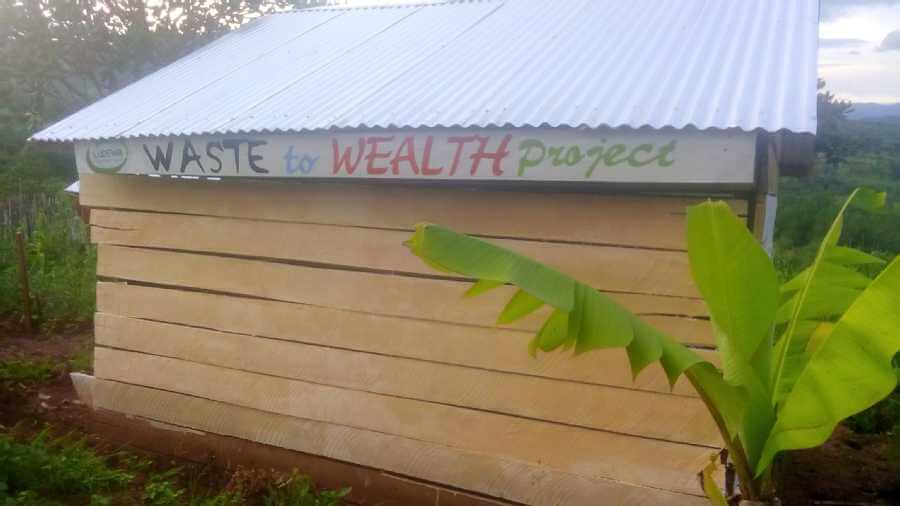 WASTE to WEALTH project